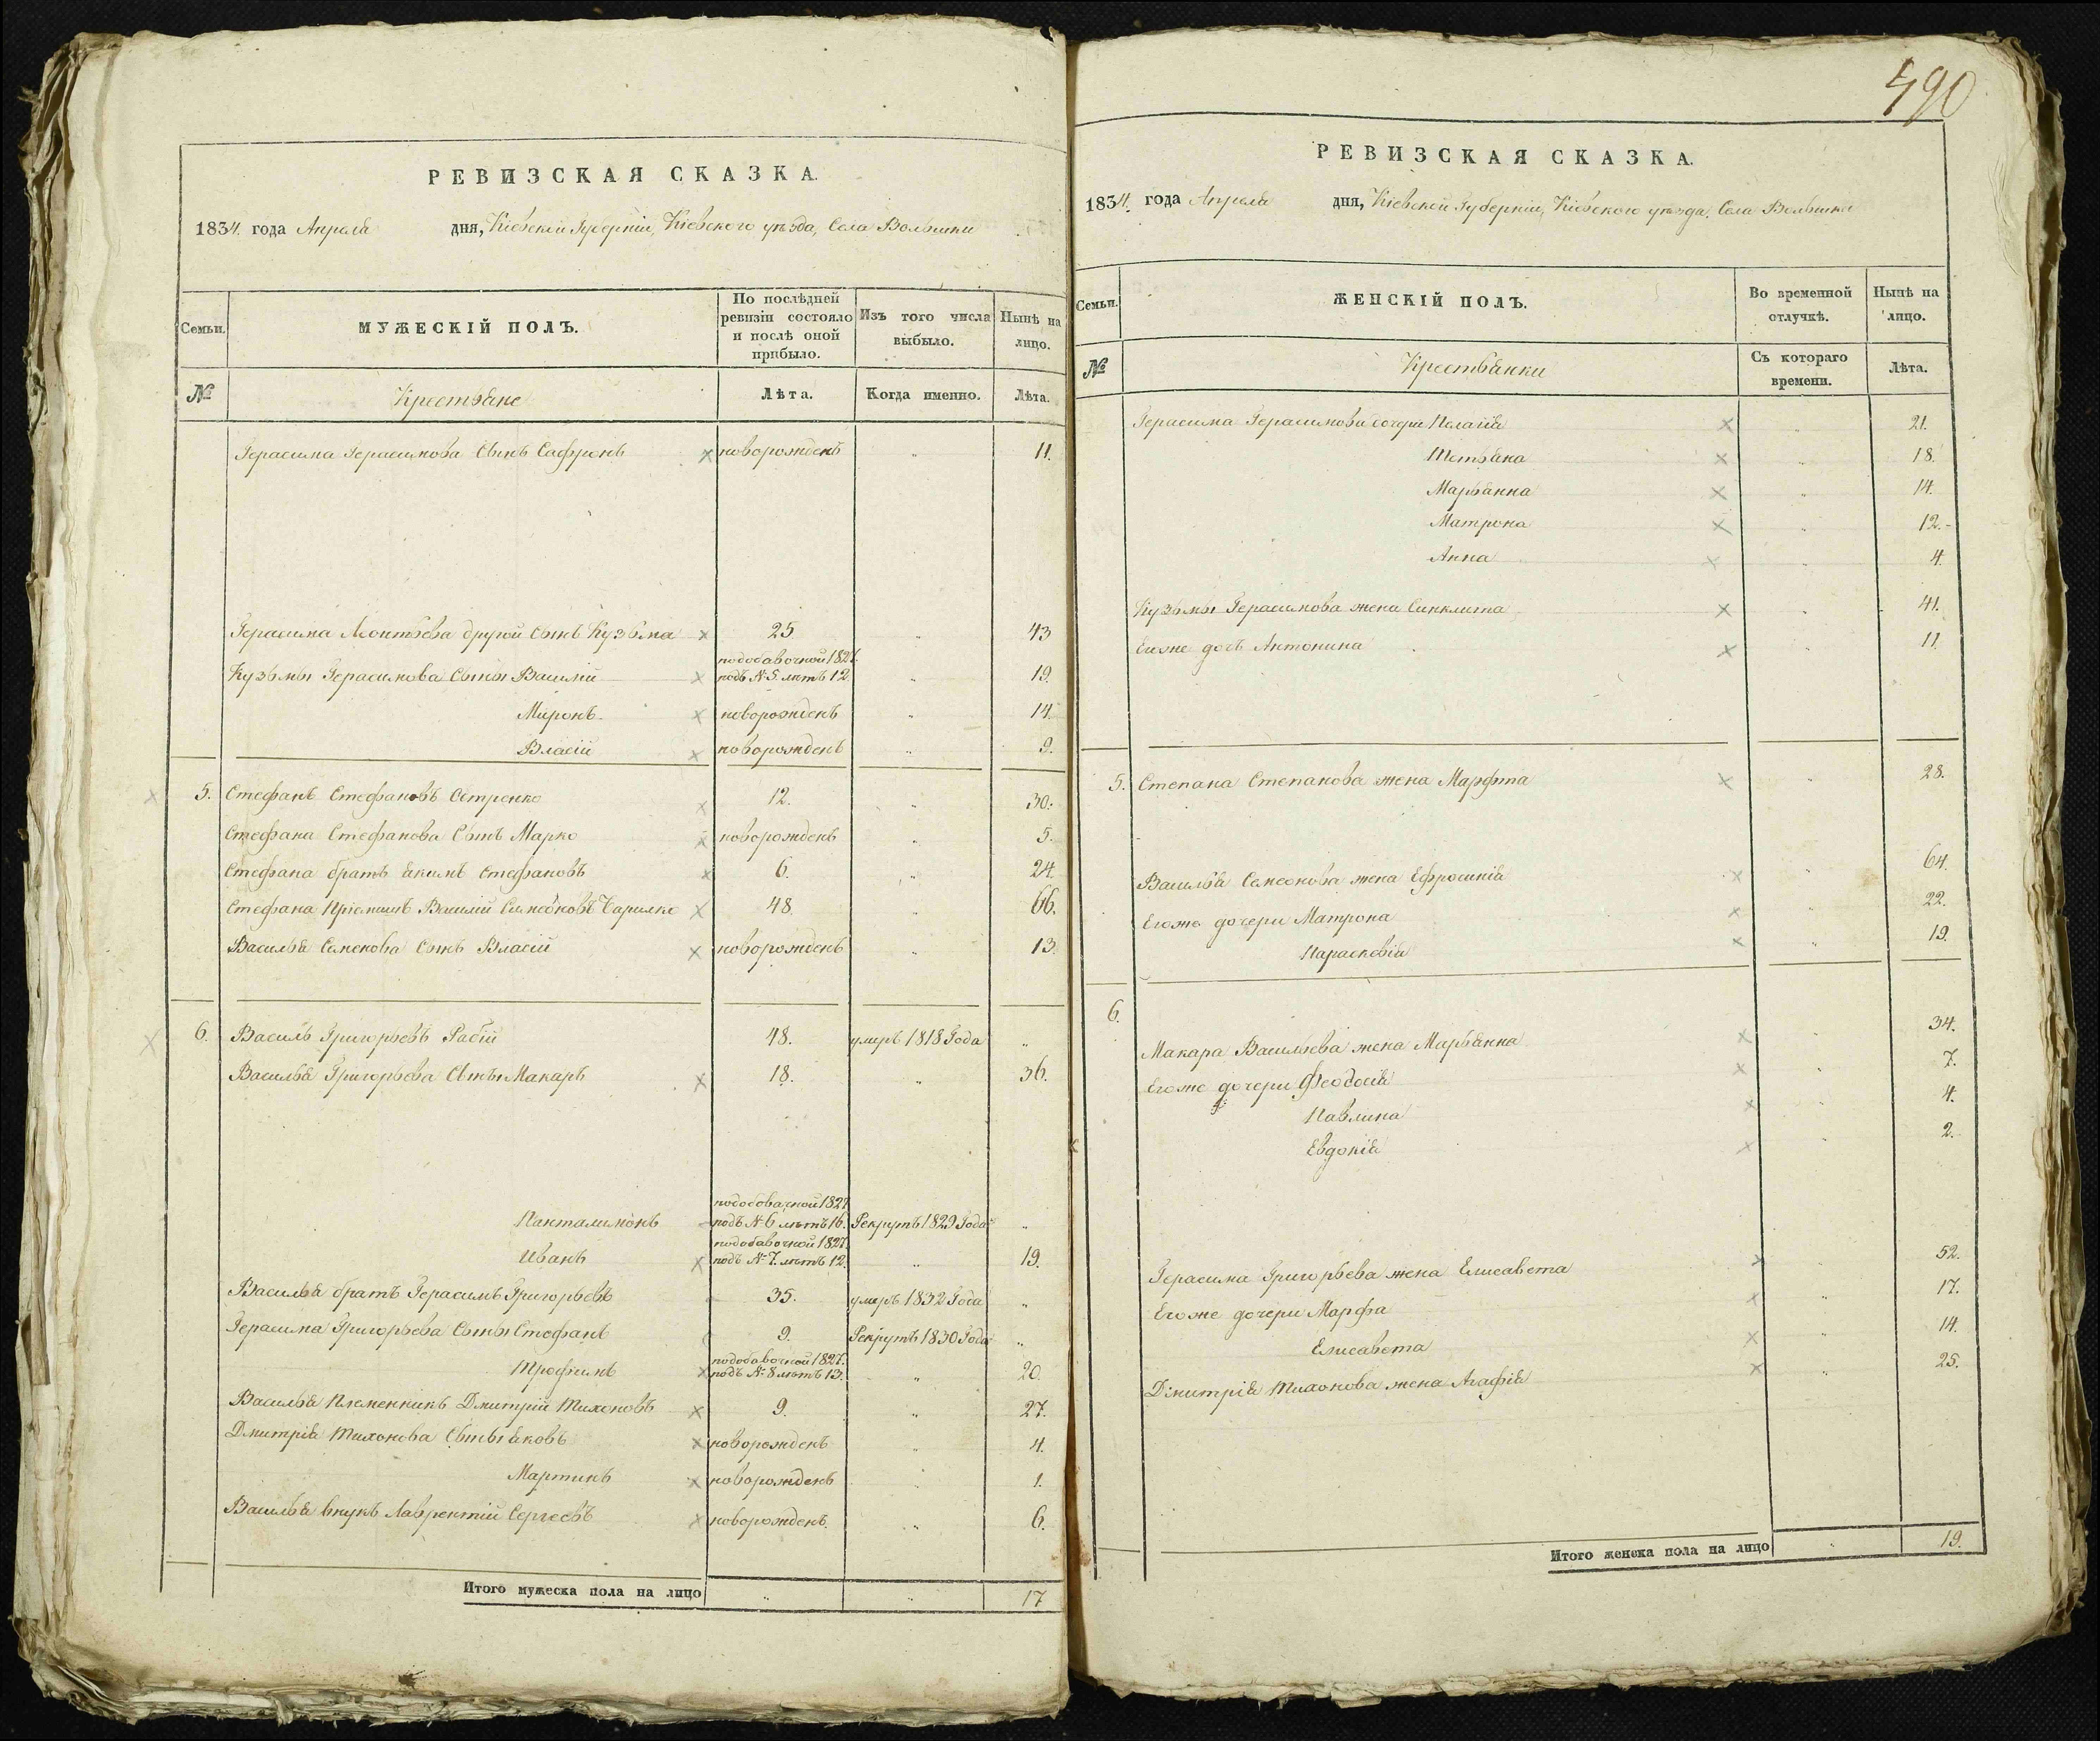 РЕВИЗСКАЯ СКАЗКА.
1834. года Апреля дня, Кіевской Губерніи, Кіевского уезда, Села
Семьи. МУЖЕСКІЙ ПОЛЪ. По послѣдней ревизіи состояло и послѣ оной прибыло. Изъ того числа выбыло. Нынѣ на лицо.
№ Крестьяне Лѣта. Когда именно. Лѣта.
Герасима Герасимова Сынъ Сафронъ новорожденъ " 11.
Герасима Леонтьева другой Сынъ Кузьма 25 " 43
подобавочной 1827.
Кузьмы Герасимова Сыны Василий подъ № 5 летъ 12 " 19.
Миронъ новорожденъ " 14.
Власій новорожденъ " 9.
5. Стефанъ Стефановъ 12. " 30.
Стефана Стефанова Сынъ Марко новорожденъ " 5.
Стефана братъ Якимъ Стефановъ 6. " 24.
Стефана Пріемышъ Василій 48. " 66.
Василья Семенова Сынъ Власій новорожденъ " 13.
6. Василь Григорьевъ Рабій 48. умеръ 1818 Года "
Василья Григорьева Сыны Макаръ 18. " 36.
подобавочной 1827
Панталимонъ подъ № 6 летъ 16. Рекрутъ 1829 Года "
подобавочной 1827.
Иванъ подъ № 7. летъ 12. " 19.
Василья братъ Герасимъ Григорьевъ 35. умеръ 1832 Года "
Герасима Григорьева Сыны Стефанъ 9. Рекрутъ 1830 Года "
подобавочной 1827.
Трофимъ подъ № 8 летъ 13. " 20.
Василья Племенникъ Дмитрій Тихоновъ 9. " 27.
Дмитрія Тихонова Сыны Яковъ новорожденъ " 4.
Мартинъ новорожденъ " 1.
Василья внукъ Лаврентій Сергеевъ новорожденъ. " 6.
Итого мужеска пола на лицо " " 17
490
РЕВИЗСКАЯ СКАЗКА.
1834. года Апреля дня, Кіевской Губерніи, Кіевского уезда, Села
Семьи. ЖЕНСКІЙ ПОЛЪ. Во временной отлучкѣ. Нынѣ на лицо.
№ Крестьянки Съ котораго времени. Лѣта.
Герасима Герасимова дочери Пелагія " 21.
Тетьяна " 18.
Марьянна " 14.
Матрона " 12.
Анна 4.
Кузьмы Герасимова жена Синклита " 41.
Егоже дочь Антонина " 11.
5. Степана Степанова жена Марфта " 28.
Василья Семенова жена Ефросинія " 64.
Егоже дочери Матрона " 22.
Парасковія " 19.
6.
Макара Васильева жена Марьянна " 34.
Егоже дочери Феодосія " 7.
Павлина " 4.
Евдокія " 2.
Герасима Григорьева жена Елисавета " 52.
Егоже дочери Марфа " 17.
Елисавета " 14.
Дмитрія Тихонова жена Агафія " 25.
Итого женска пола на лицо " 19.